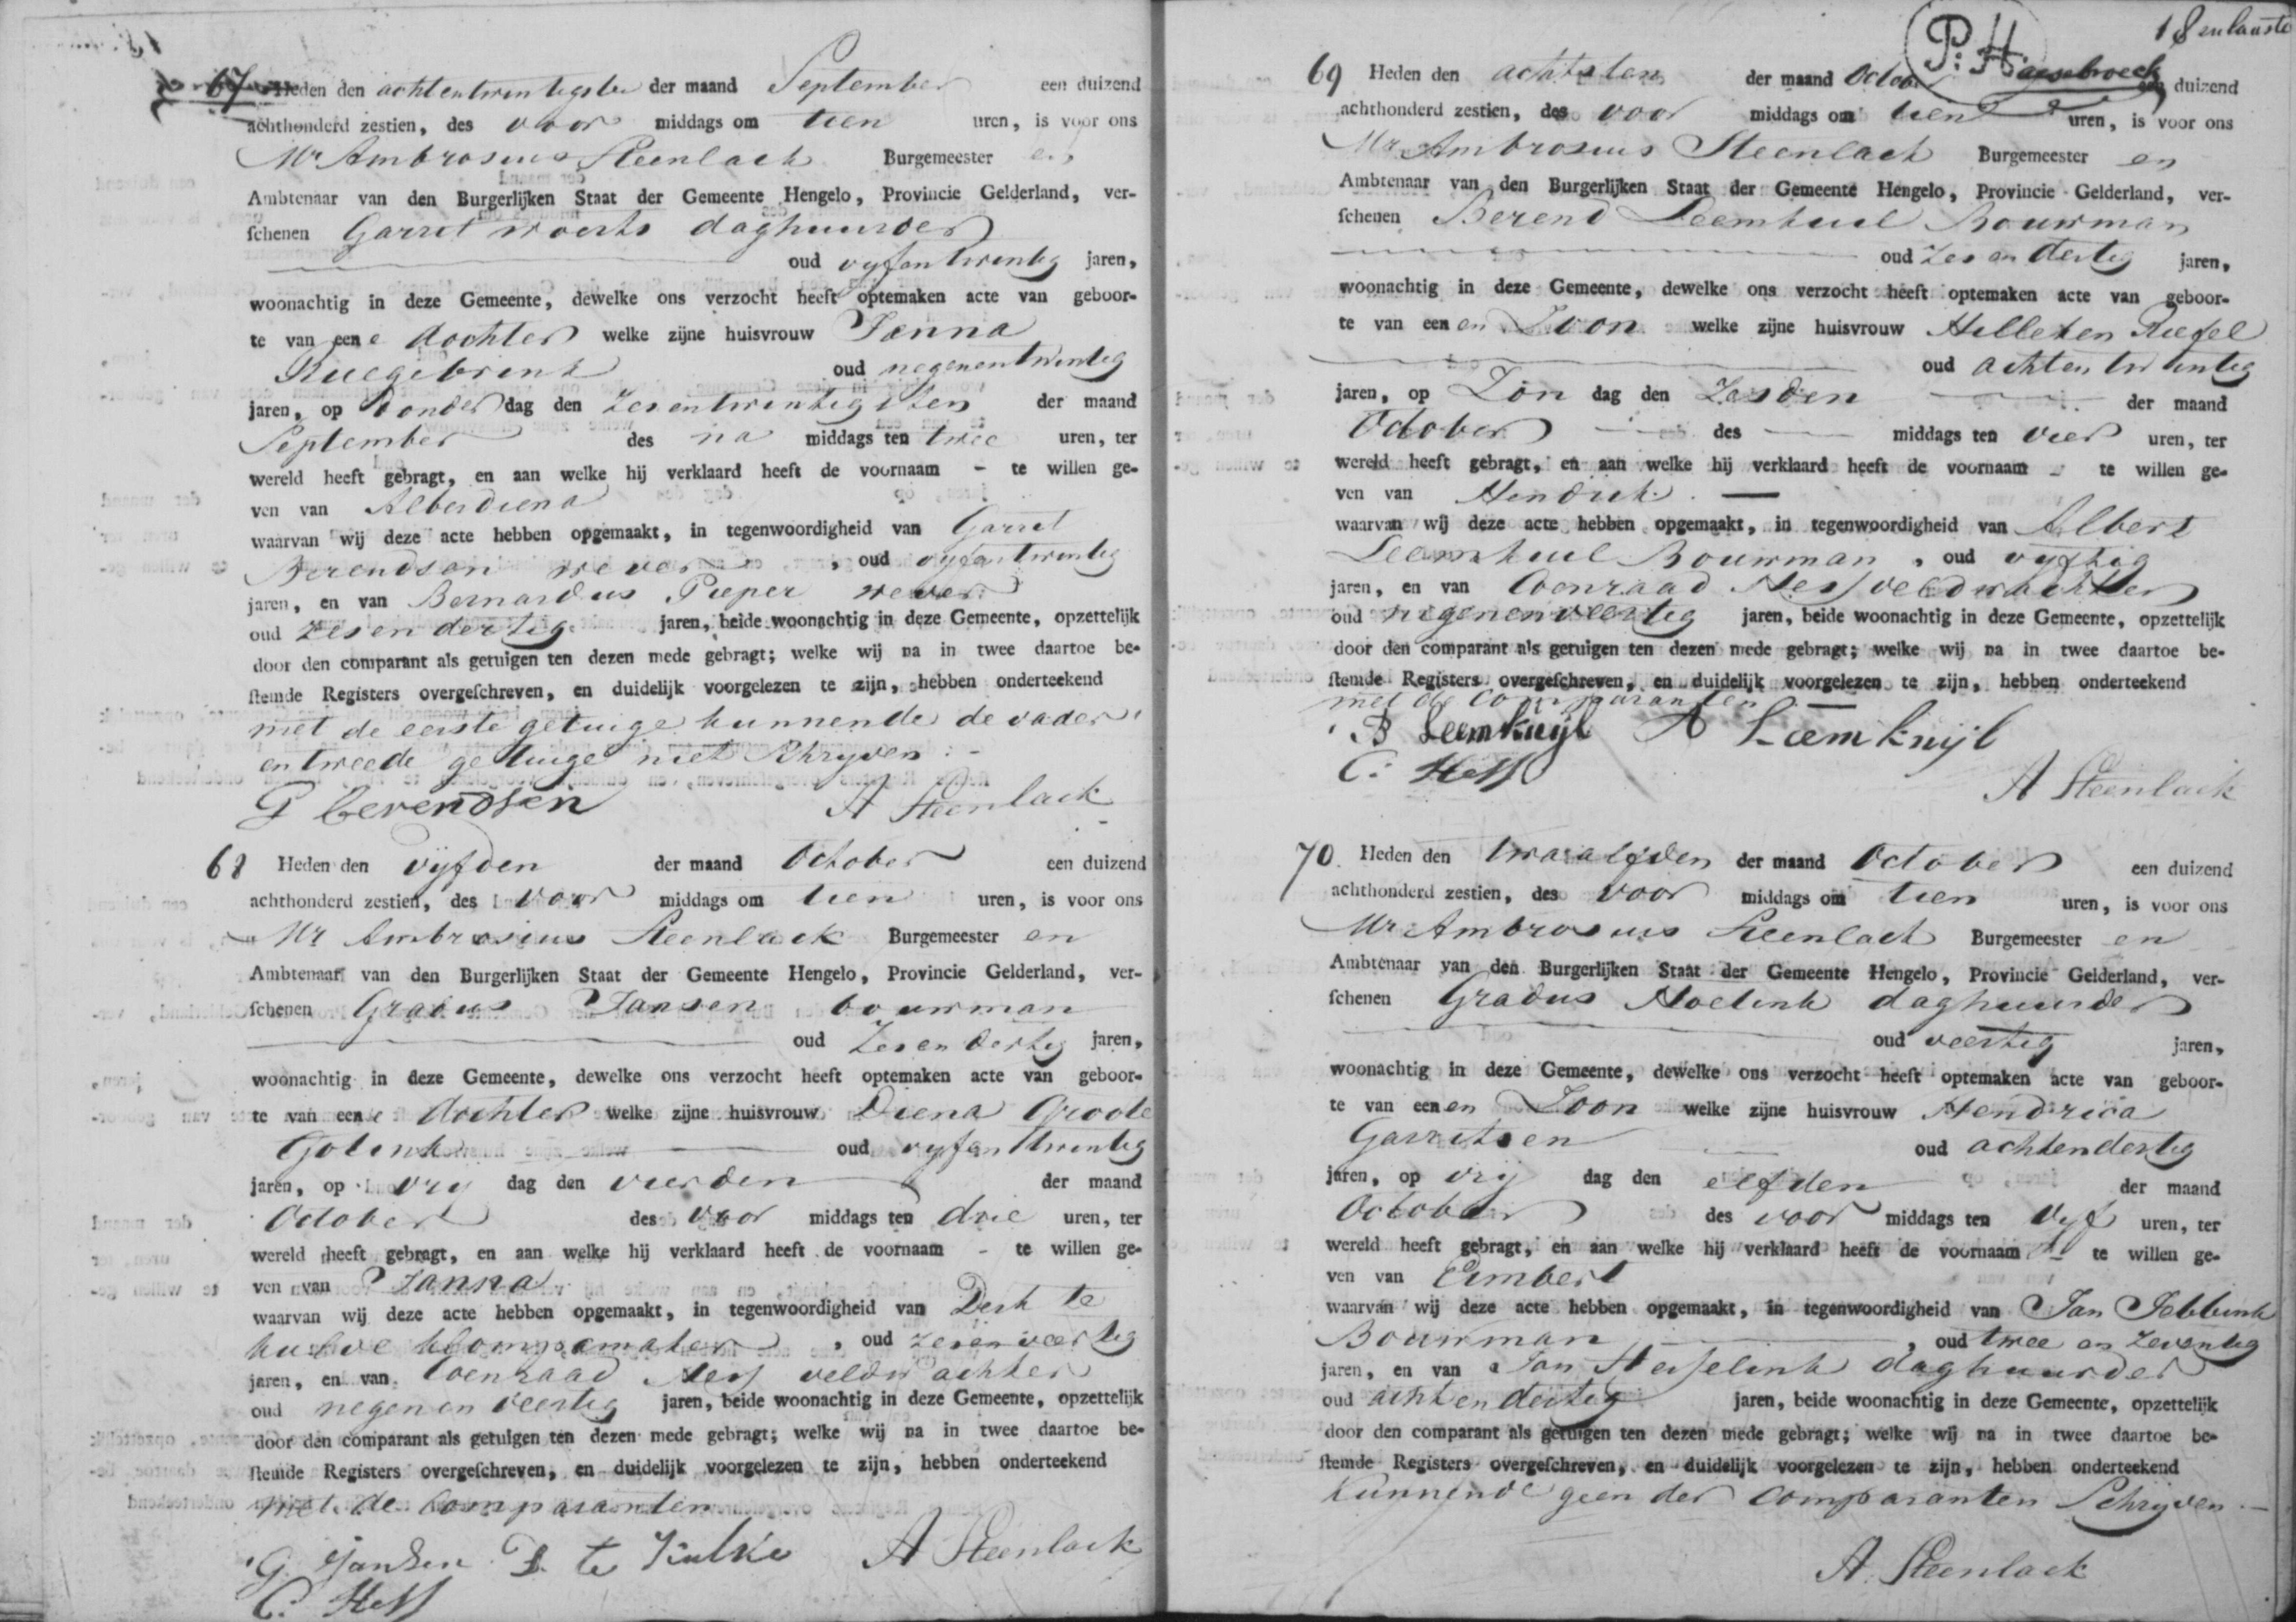 67 Heden den achtentwintigste der maand September een duizend
achthonderd zestien, des voor middags om tien uren, is voor ons
Mr Ambrosius Steenlack Burgemeester en
Ambtenaar van den Burgerlijken Staat der Gemeente Hengelo, Provincie Gelderland, ver-
schenen Garret daghuurder
oud vyfentwintig jaren,
woonachtig in deze Gemeente, dewelke ons verzocht heeft optemaken acte van geboor-
te van eene dochter welke zijne huisvrouw Janna
oud negenentwintig
jaren, op Donderdag den zesentwintigsten der maand
September des na middags ten twee uren, ter
wereld heeft gebragt, en aan welke hij verklaard heeft de voornaam - te willen ge-
ven van Alberdiena
waarvan wij deze acte hebben opgemaakt, in tegenwoordigheid van Garret
Berendsen wever, oud vyfentwintig
jaren, en van Bernardus Pieper wever
oud zesendertig jaren, beide woonachtig in deze Gemeente, opzettelijk
door den comparant als getuigen ten dezen mede gebragt; welke wij na in twee daartoe be-
stemde Registers overgeschreven, en duidelijk voorgelezen te zijn, hebben onderteekend
met de eerste getuige kunnende de vader
en tweede getuige niet Schryven
G berendsen A Steenlack
68 Heden den vijfden der maand October een duizend
achthonderd zestien, des voor middags om tien uren, is voor ons
Mr Ambrosius Steenlack Burgemeester en
Ambtenaar van den Burgerlijken Staat der Gemeente Hengelo, Provincie Gelderland, ver-
schenen Gradus Jansen bouwman
oud zesendertig jaren,
woonachtig in deze Gemeente, dewelke ons verzocht heeft optemaken acte van geboor-
te van eene dochter welke zijne huisvrouw Diena Groote
Golink oud vyfentwintig
jaren, op vry dag den vierden der maand
October des voor middags ten drie uren, ter
wereld heeft gebragt, en aan welke hij verklaard heeft de voornaam - te willen ge-
ven van Janna
waarvan wij deze acte hebben opgemaakt, in tegenwoordigheid van Derk te
klompemaker, oud zesenveertig
jaren, en van Coenraad Hess veldwachter
oud negenenveertig jaren, beide woonachtig in deze Gemeente, opzettelijk
door den comparant als getuigen ten dezen mede gebragt; welke wij na in twee daartoe be-
stemde Registers overgeschreven, en duidelijk voorgelezen te zijn, hebben onderteekend
met de Comparanten
G. Jansen D. te A Steenlack
C. Hess
18
P: H.
69 Heden den achtsten der maand Octob een duizend
achthonderd zestien, des voor middags om tien uren, is voor ons
Mr Ambrosius Steenlack Burgemeester en
Ambtenaar van den Burgerlijken Staat der Gemeente Hengelo, Provincie Gelderland, ver-
schenen Berend Leemkuil Bouwman
oud Zes en dertig jaren,
woonachtig in deze Gemeente, dewelke ons verzocht heeft optemaken acte van geboor-
te van eenen Zoon welke zijne huisvrouw Hilleken
oud achtentwintig
jaren, op Zon dag den Zesden der maand
October des middags ten vier uren, ter
wereld heeft gebragt, en aan welke hij verklaard heeft de voornaam - te willen ge-
ven van Hendrik
waarvan wij deze acte hebben opgemaakt, in tegenwoordigheid van Albert
Leemkuil Bouwman, oud vyftig
jaren, en van Coenraad Hess veldwachter
oud negenenveertig jaren, beide woonachtig in deze Gemeente, opzettelijk
door den comparant als getuigen ten dezen mede gebragt; welke wij na in twee daartoe be-
stemde Registers overgeschreven, en duidelijk voorgelezen te zijn, hebben onderteekend
met de Comparanten
B Leemkuijl A Leemkuijl
C: Hess
A Steenlack
70. Heden den twaalfden der maand October een duizend
achthonderd zestien, des voor middags om tien uren, is voor ons
Mr Ambrosius Steenlack Burgemeester en
Ambtenaar van den Burgerlijken Staat der Gemeente Hengelo, Provincie Gelderland, ver-
schenen Gradus daghuurder
oud veertig jaren,
woonachtig in deze Gemeente, dewelke ons verzocht heeft optemaken acte van geboor-
te van eenen Zoon welke zijne huisvrouw Hendrica
Garritsen oud achtendertig
jaren, op vrij dag den elfden der maand
October des voor middags ten vyf uren, ter
wereld heeft gebragt, en aan welke hij verklaard heeft de voornaam - te willen ge-
ven van Eimbert
waarvan wij deze acte hebben opgemaakt, in tegenwoordigheid van Jan Jebbink
Bouwman, oud twee en zeventig
jaren, en van Jan Hesselink daghuurder
oud achtendertig jaren, beide woonachtig in deze Gemeente, opzettelijk
door den comparant als getuigen ten dezen mede gebragt; welke wij na in twee daartoe be-
stemde Registers overgeschreven, en duidelijk voorgelezen te zijn, hebben onderteekend
Kunnende geen der Comparanten Schryven
A. Steenlack